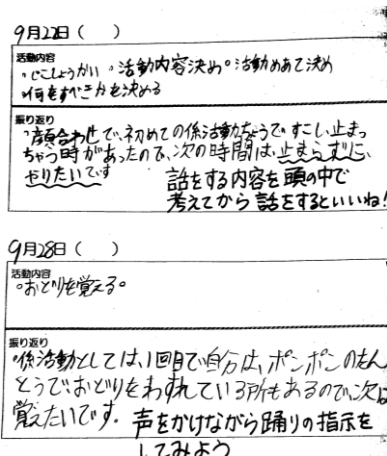 9月22日（　）
活動内容
・じこしょうかい ・活動内容決め・活動めあて決め
・何をすべきかを決める
振り返り
・顔合わせで、初めての係活動ちょうで、すこし止まっ
ちゃう時があったので、次の時間は、止まらずに、
やりたいです
話をする内容を頭の中で
考えてから話をするといいね!
9月28日（　）
活動内容
・おどりを覚える。
振り返り
・係活動としては、1回目で自分は、ポンポンのたん
とうで、おどりをわすれている所もあるので、次は
覚えたいです。
声をかけながら踊りの指示を
してみよう